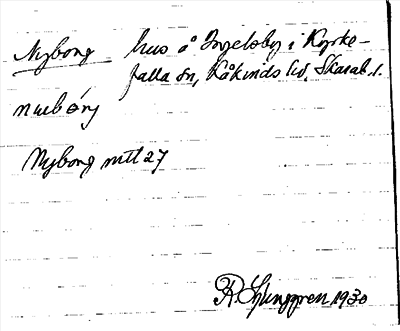 Nyborg hus å Ingelsby i Kyrke-
falla sn, Kåkinds hd, Skarab. l.
Nyborg mtl 27
R. Ljunggren 1930